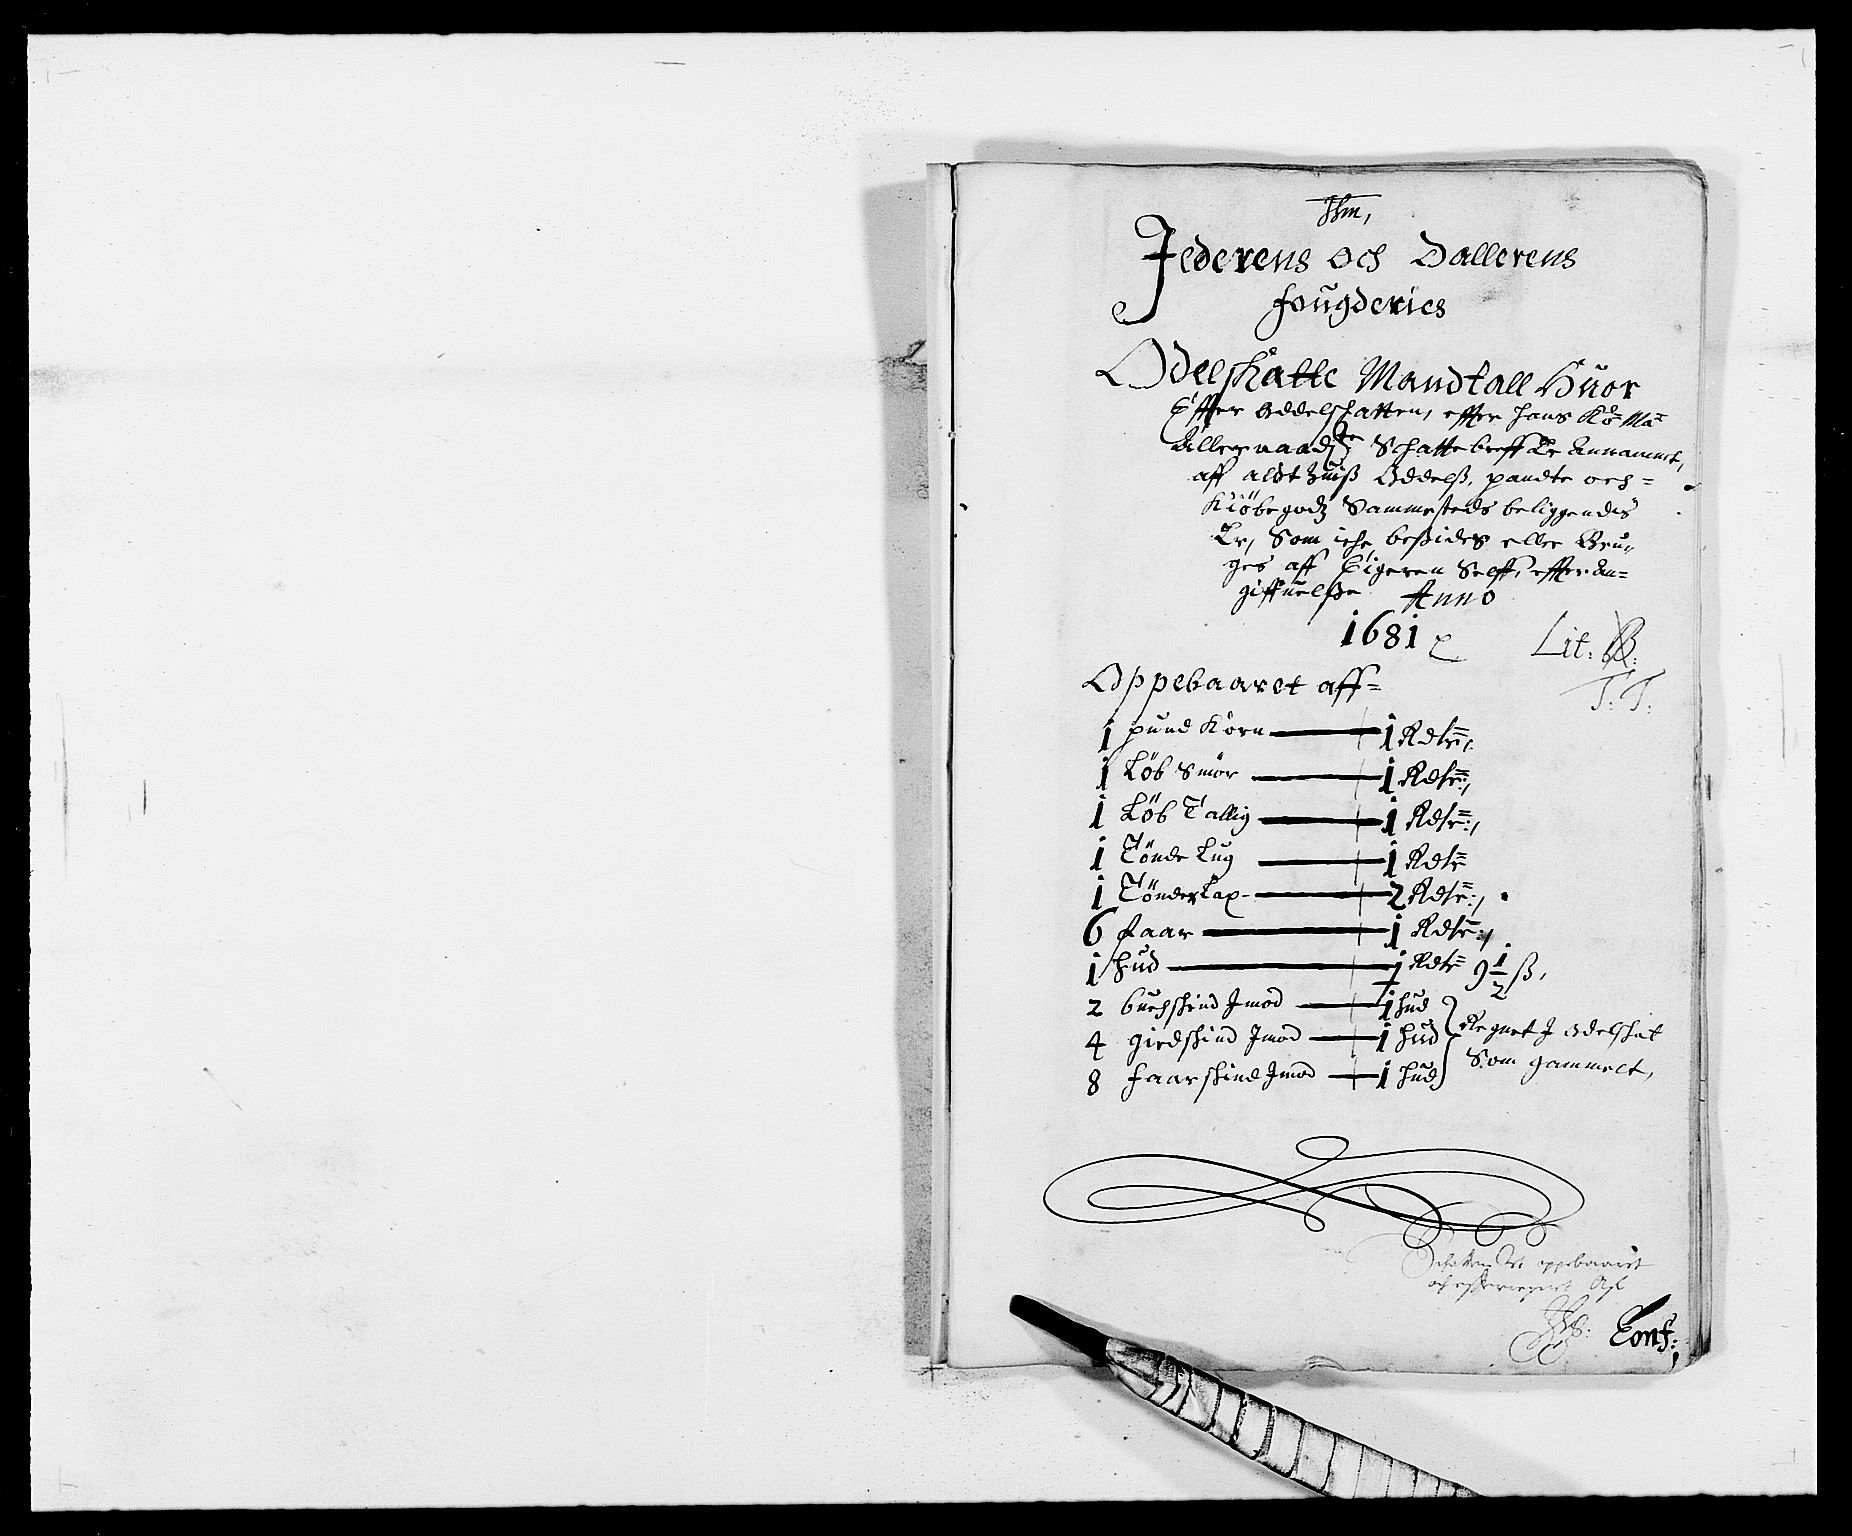 Jederens och Dallerens
fougderies
Odelskatte Mandtall Huor
Effter Oddelschatten, effter hans Ko: Ma:
Allernaadste Schattebreff Er Annammet,
aff aldt huiß Oddelß, pandte och
Kiöbegodz Sammesteds beliggendis
Er, Som iche beßides eller Bru-
ges aff Eigeren Selff, effter An-
giffuelße Anno
1681
Lit: B:
T: T:
Oppebaaret aff
1 pund Korn 1 Rdlr:,
1 Löb Smör 1 Rdlr:,
1 Löb Tallig 1 Rdlr:,
1 Tönde Lug 1 Rdlr
1 Tönde Lax 2 Rdlr:,
6 faar 1 Rdlr:,
1 hud 1 Rdlr 9 1/2 ß,
2 buchskind Imod 1 hud
4 giedskind Imod 1 hud Regnet J Odelskat
8 faarskind Imod 1 hud Som gammelt,
oppebaaret
Conf: